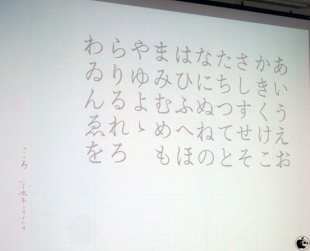 あいうえお
かきくけこ
さしすせそ
たちつてと
なにぬねの
はひふへほ
まみむめも
やゆよゝ
らりるれろ
わゐんゑを